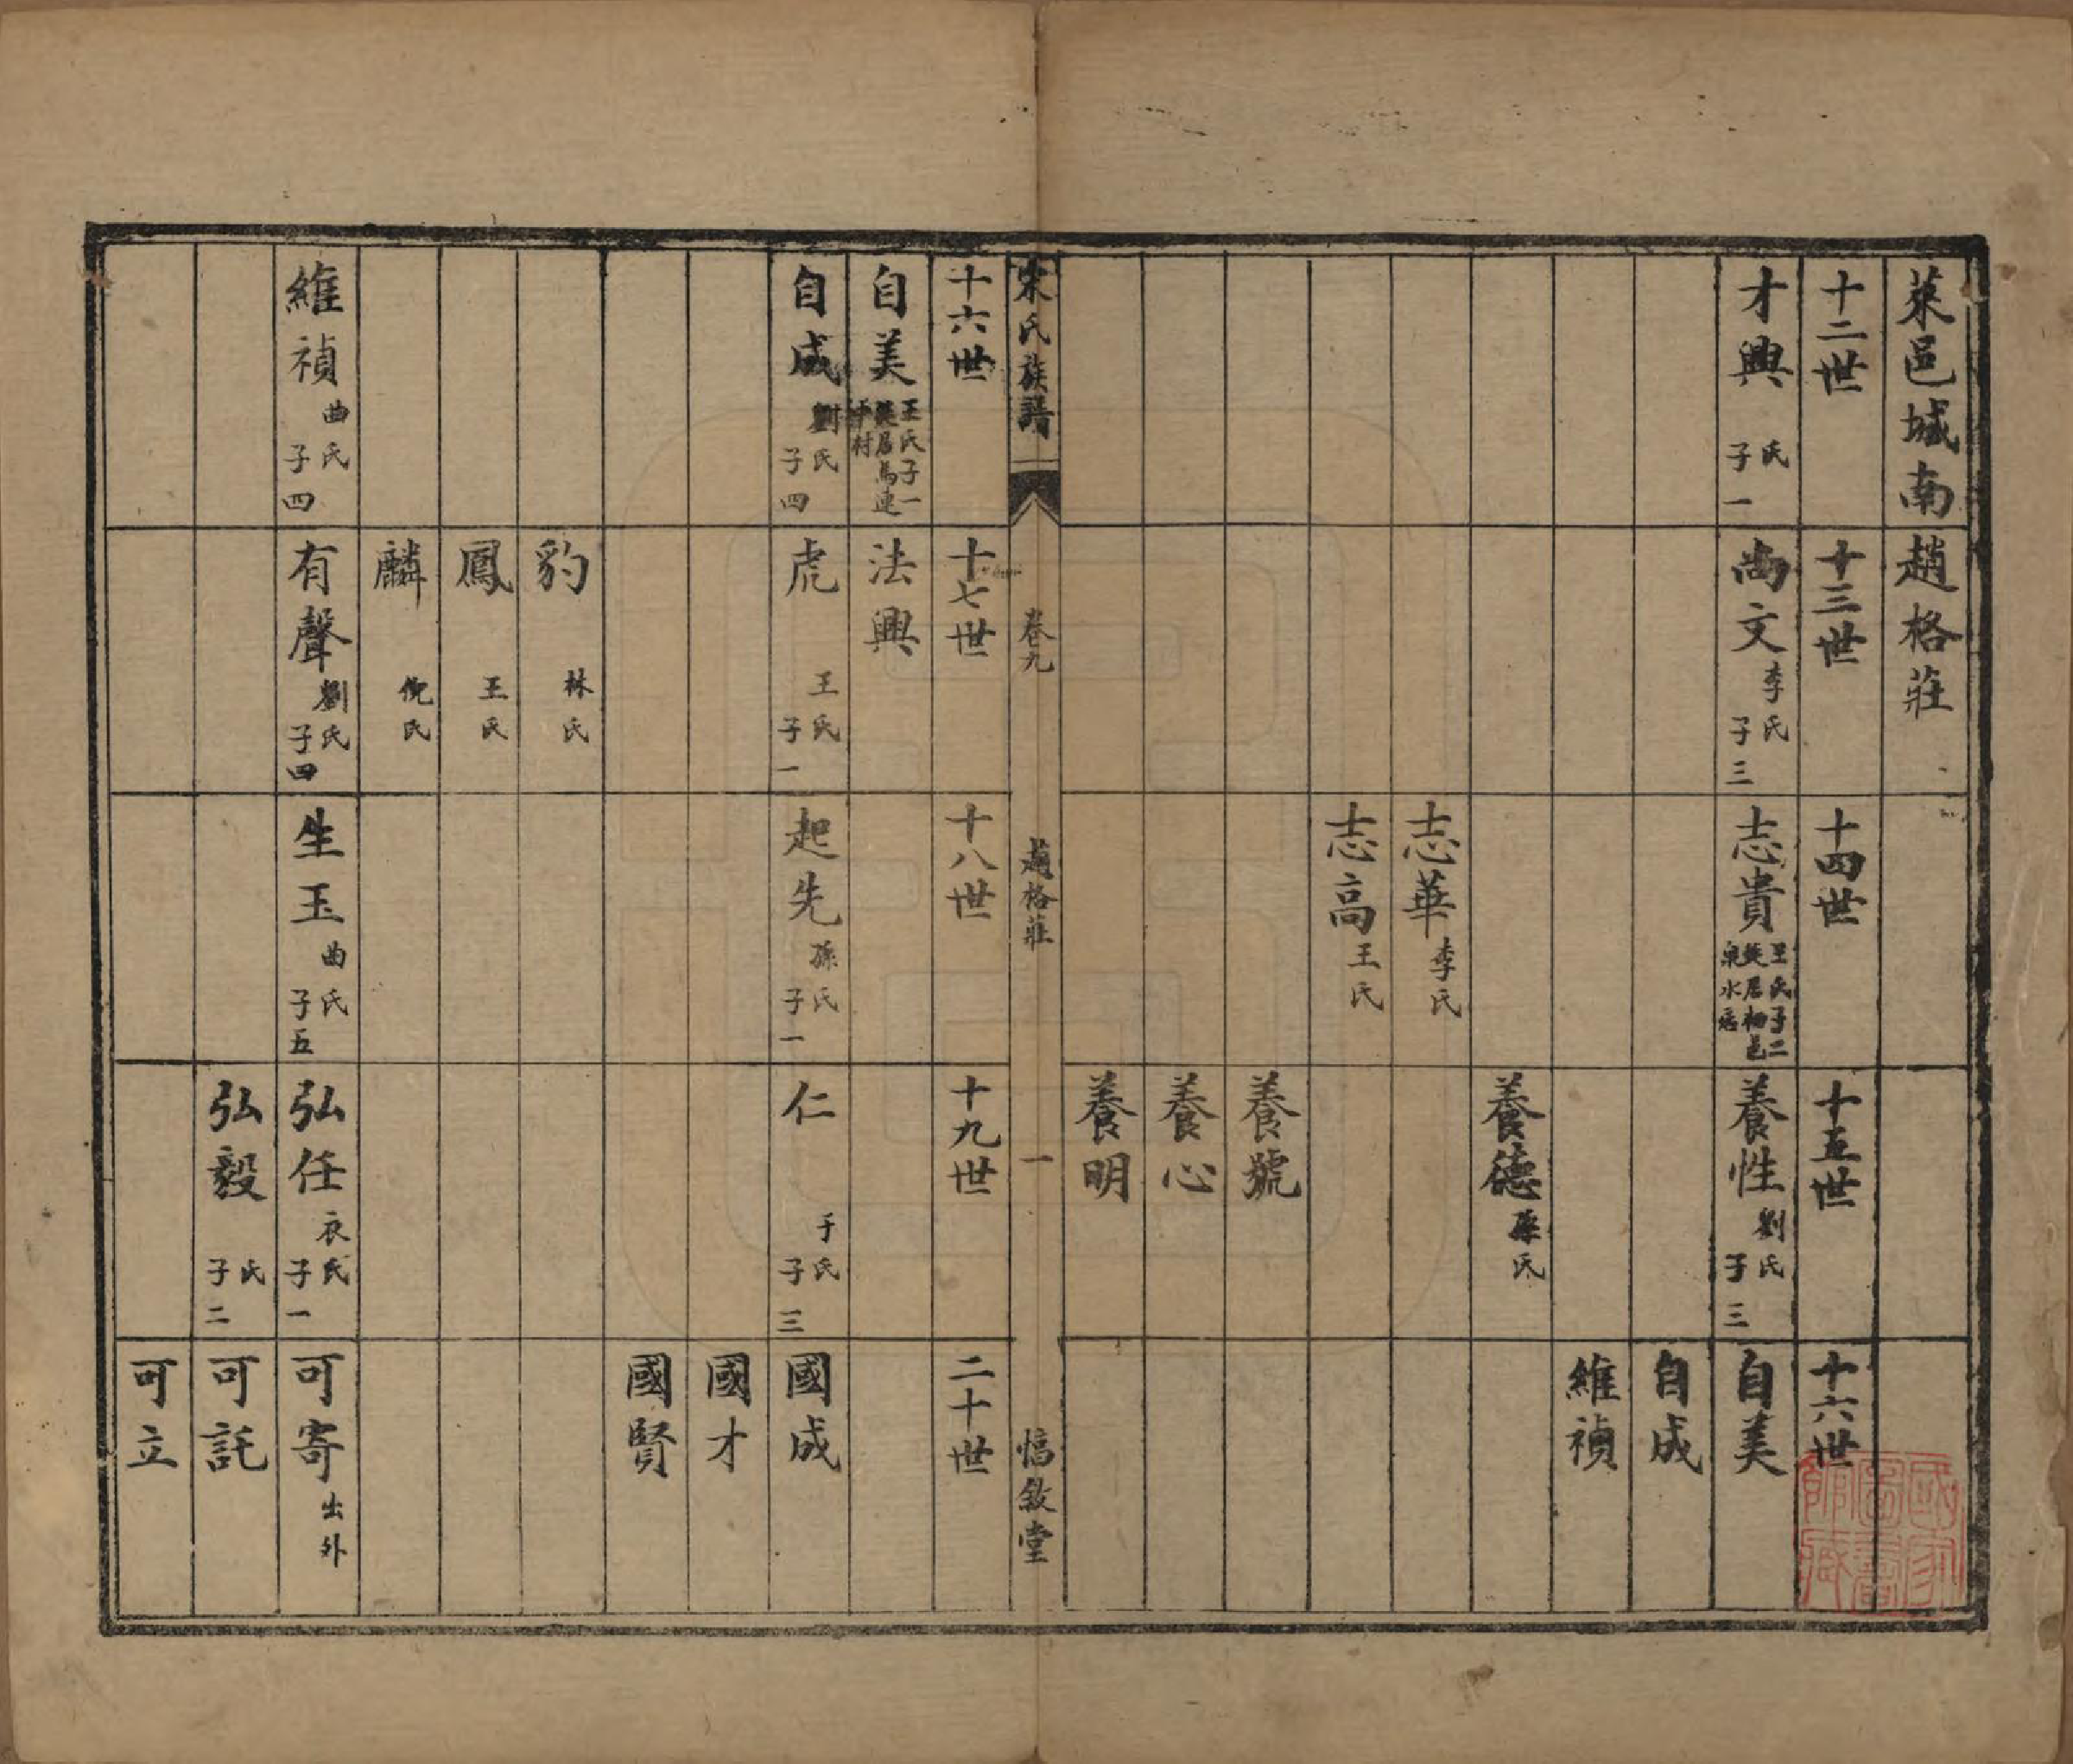 萊邑城南趙格莊
十二世 十三世 十四世 十五世 十六世
才興 氏 子一
尚文 李氏 子三
志貴 王氏子二 徙居 邑 泉水
養性 劉氏 子三
自美
自成
維禎
養德 孫氏
志華 李氏
志高 王氏
養號
養心
養明
宋氏族譜 卷九 趙格莊 一 惇敘堂
十六世 十七世 十八世 十九世 二十世
自美 王氏子一 徙居馬連 村
法興
自成 劉氏 子四
虎 王氏 子一
起先 孫氏 子一
仁 于氏 子三
國成
國才
國賢
豹 林氏
鳳 王氏
麟 倪氏
維禎 曲氏 子四
有聲 劉氏 子四
生玉 曲氏 子五
弘任 衣氏 子一
可寄 出外
弘毅 氏 子二
可託
可立
國家圖書館藏